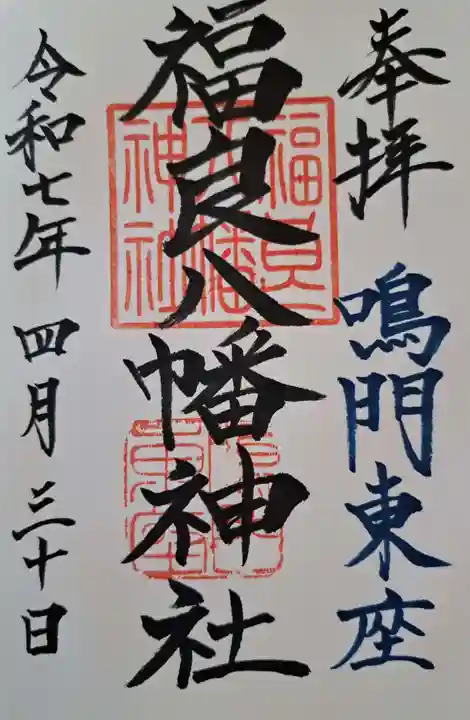 奉拝 鳴門東座
福良八幡神社
令和七年 四月 三十日
福良
八幡
神社